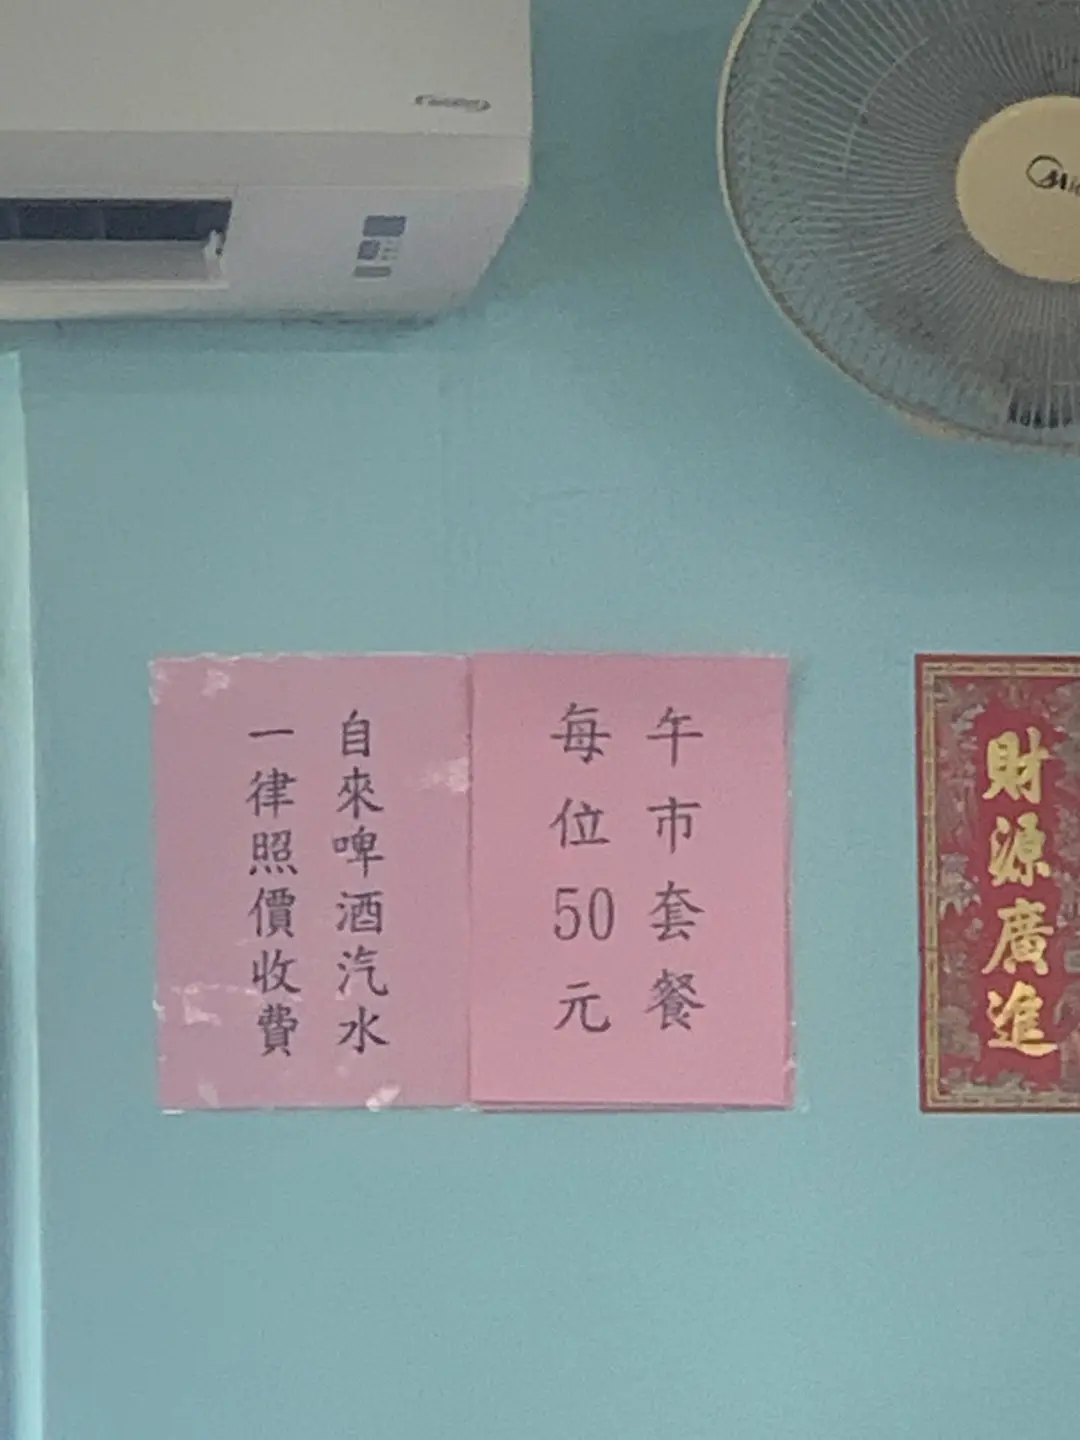 午市套餐
每位50元
自來啤酒汽水
一律照價收費
財源廣進